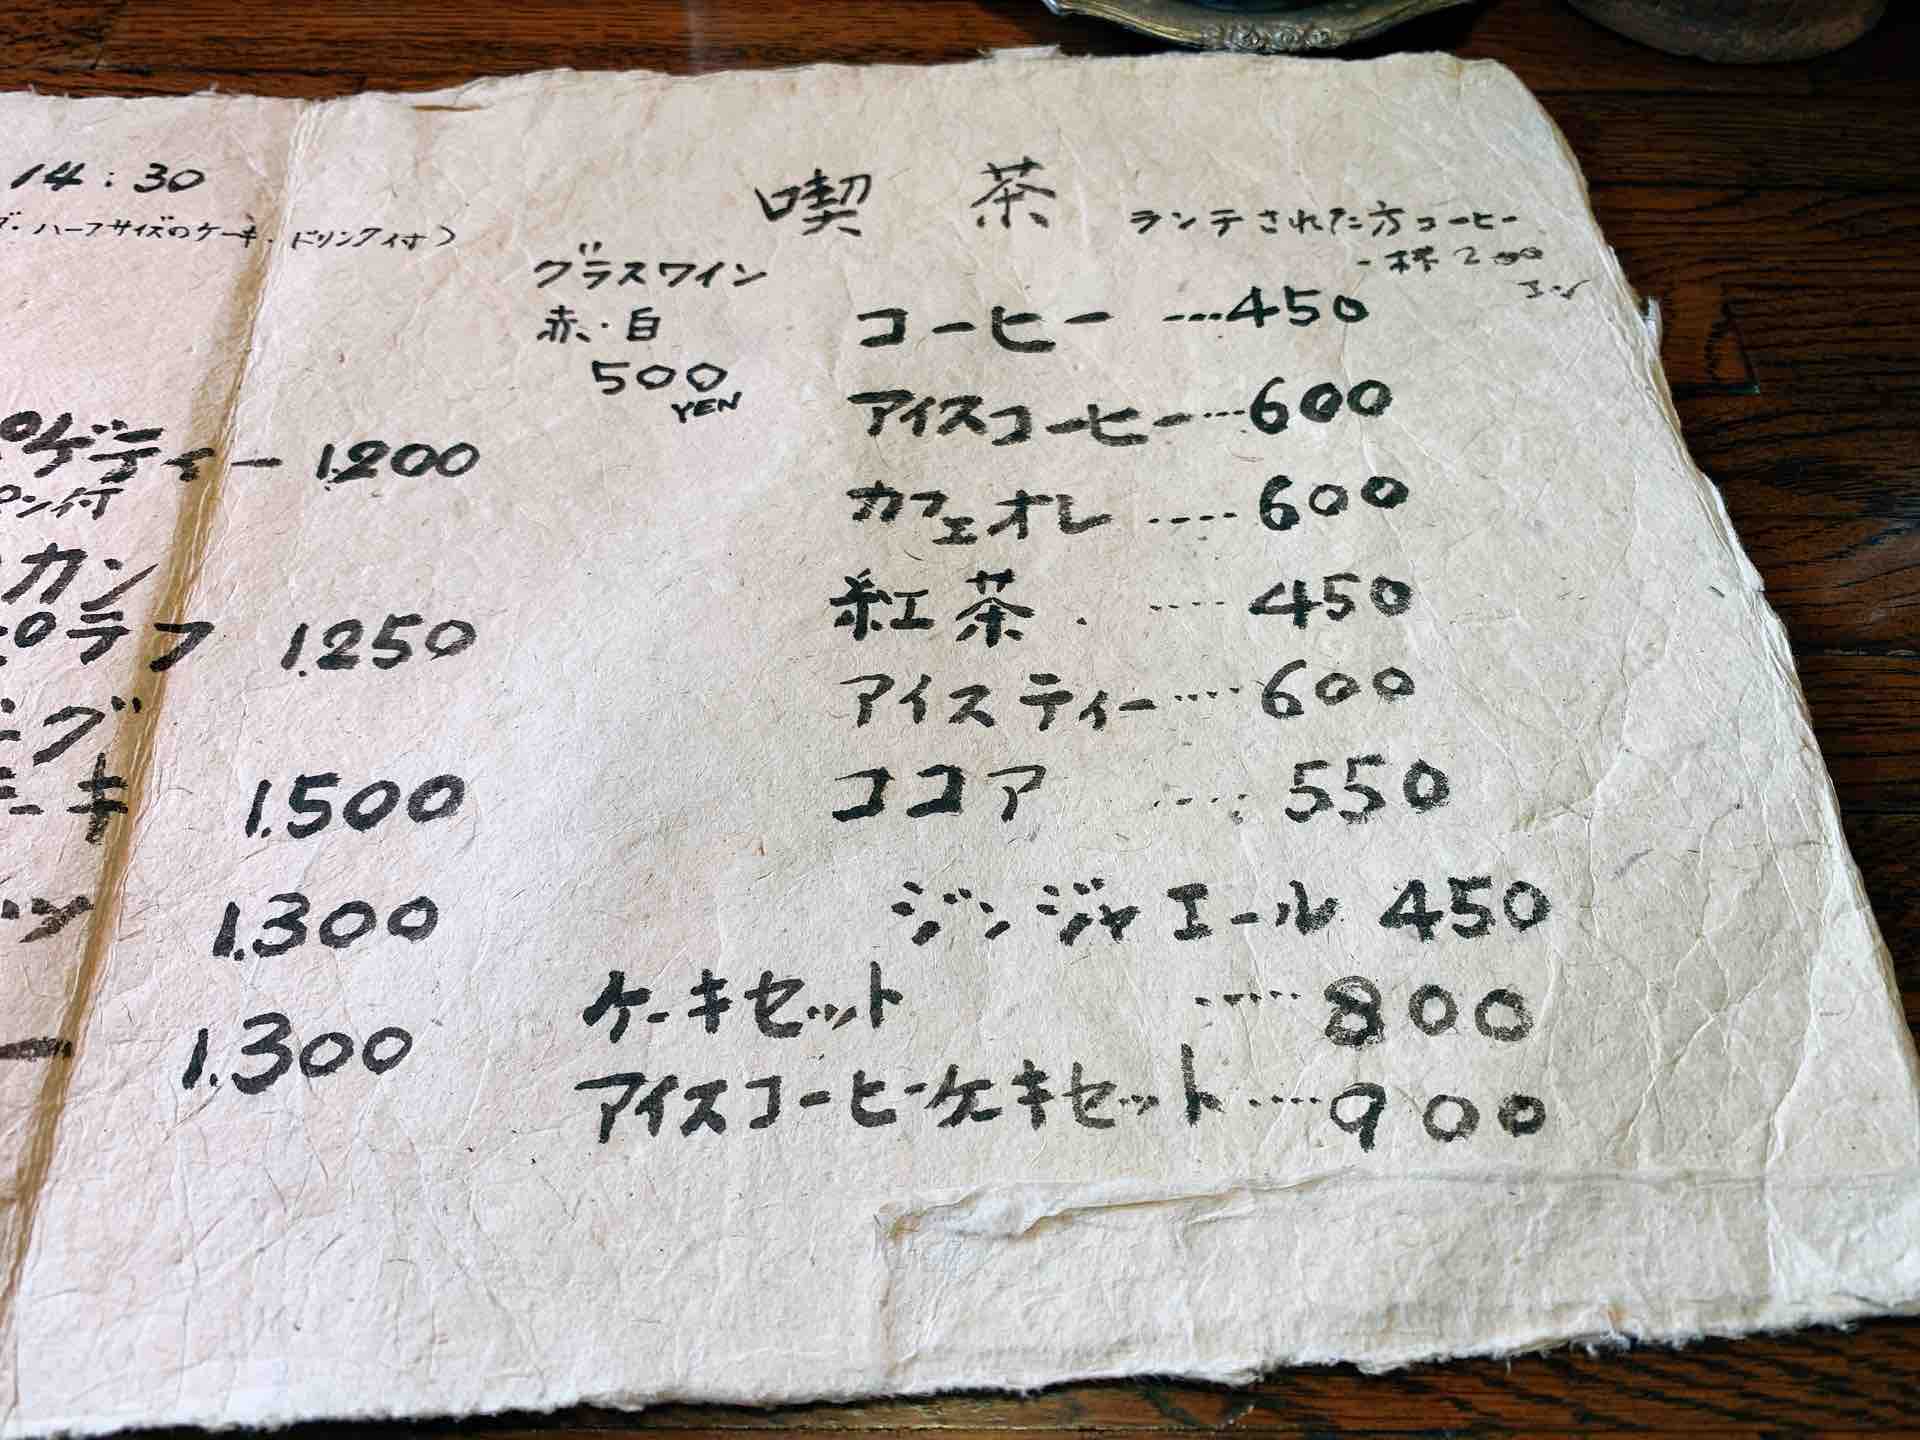 14:30
・ハーフサイズのケーキ・ドリンク付)
パゲティー 1.200
パン付
カン
ピラフ 1.250
グ
ーキ 1.500
1.300
ー 1.300
喫 茶
ランチされた方コーヒー
一杯 200
エン
グラスワイン
赤・白
500
YEN
コーヒー …450
アイスコーヒー…600
カフェオレ ….600
紅茶. ….450
アイスティー….600
ココア ….550
ジンジャエール 450
ケーキセット …..800
アイスコーヒーケーキセット….900